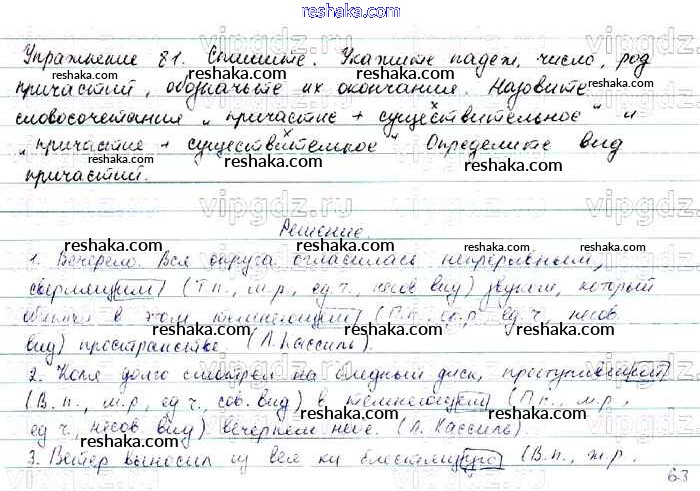 reshaka.com
Упражнение 81. Спишите. Укажите падеж, число, род
reshaka.com reshaka.com reshaka.com
причастий, обозначьте их окончания. Назовите
словосочетания „ причастие + существительное “ и
reshaka.com reshaka.com reshaka.com
„ причастие + существительное “ Определите вид
причастий.
vipgdz.ru vipgdz.ru vipgdz.ru
Решение.
reshaka.com reshaka.com reshaka.com
1. Вечерело. Вся округа огласилась непрерывным,
сверлящим (Т.п., м.р., ед.ч., несов. вид) звуком, который
reshaka.com reshaka.com reshaka.com
в этом темнеющем (П.п., ср.р. ед.ч., несов.
вид) пространстве. (Л. Кассиль).
reshaka.com reshaka.com reshaka.com
2. Коля долго смотрел на бледный диск, проступивший
(В.п., м.р., ед.ч., сов. вид) в темнеющем (П.п., м.р.,
reshaka.com reshaka.com reshaka.com
ед.ч., несов. вид) вечернем небе. (Л. Кассиль).
reshaka.com reshaka.com reshaka.com
3. Ветер выносил блестящую (В.п., ж.р.
63